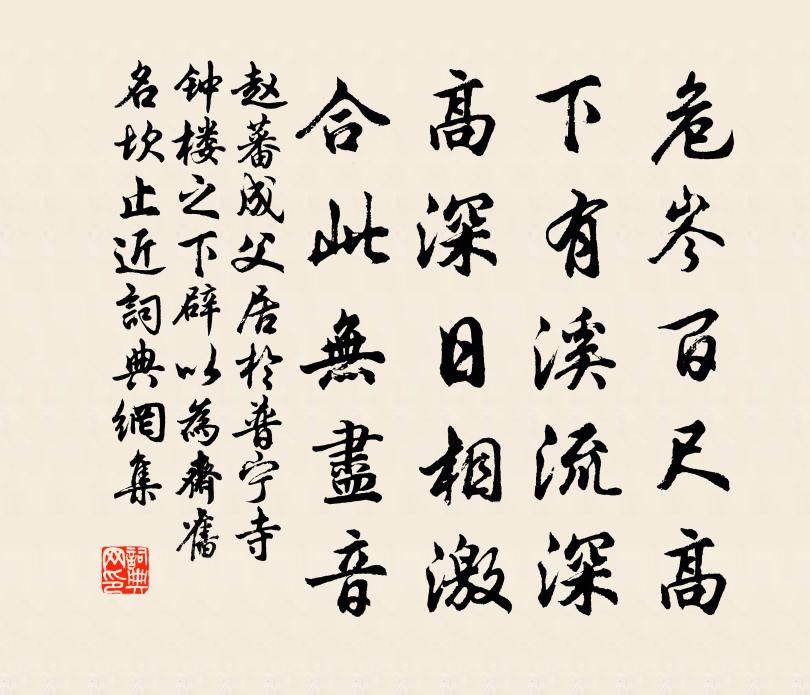 危岑百尺高
下有溪流深
高深日相激
合此無盡音
赵蕃成父居於普宁寺
钟楼之下辟以為齋舊
名坎止近詞典網集
詞典网印